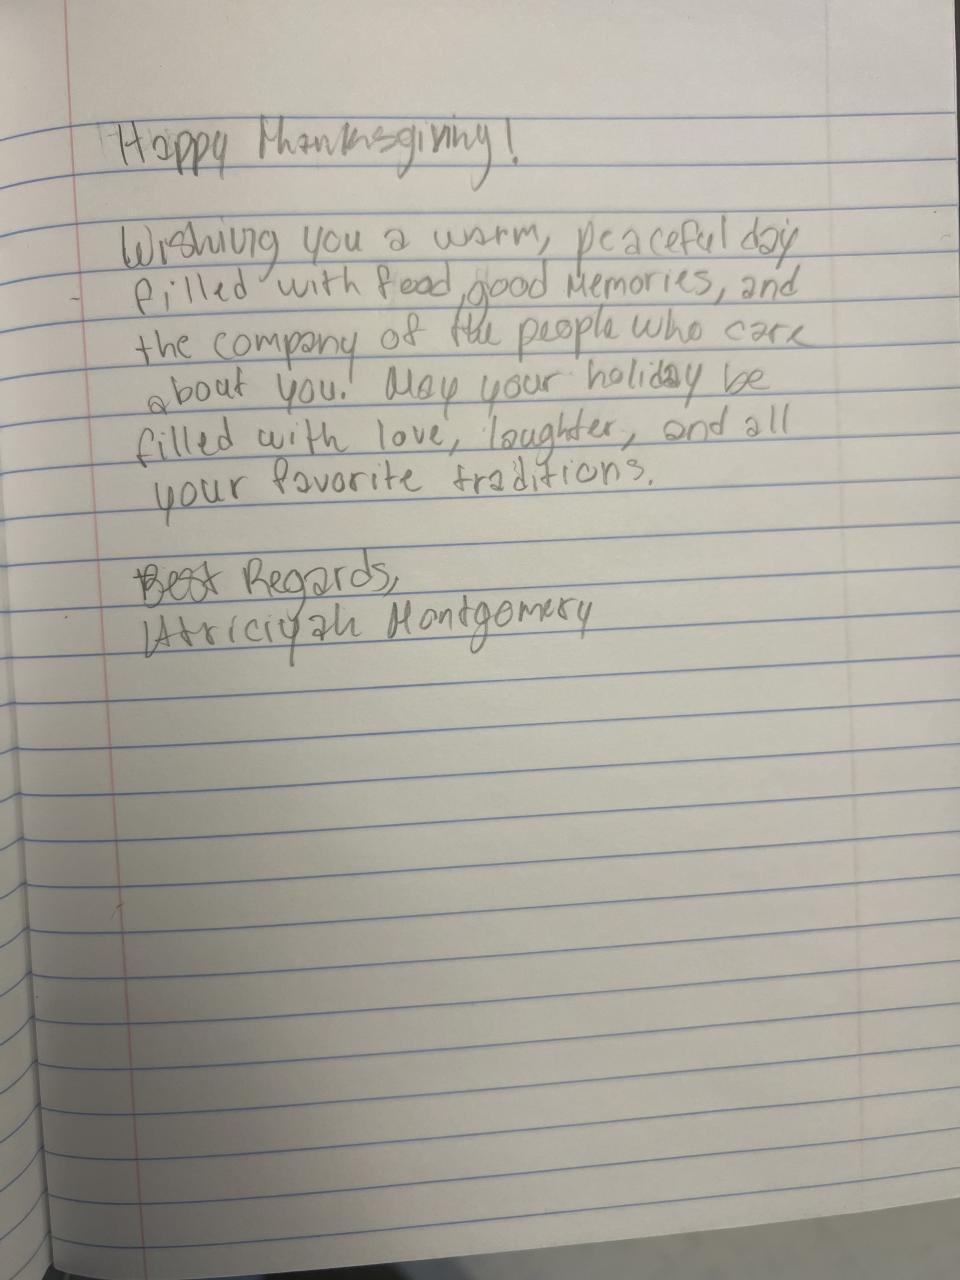 Happy Thanksgiving!
Wishing you a warm, peaceful day
filled with food, good Memories, and
the company of the people who care
about you. May your holiday be
filled with love, laughter, and all
your favorite traditions.
Best Regards,
Montgomery